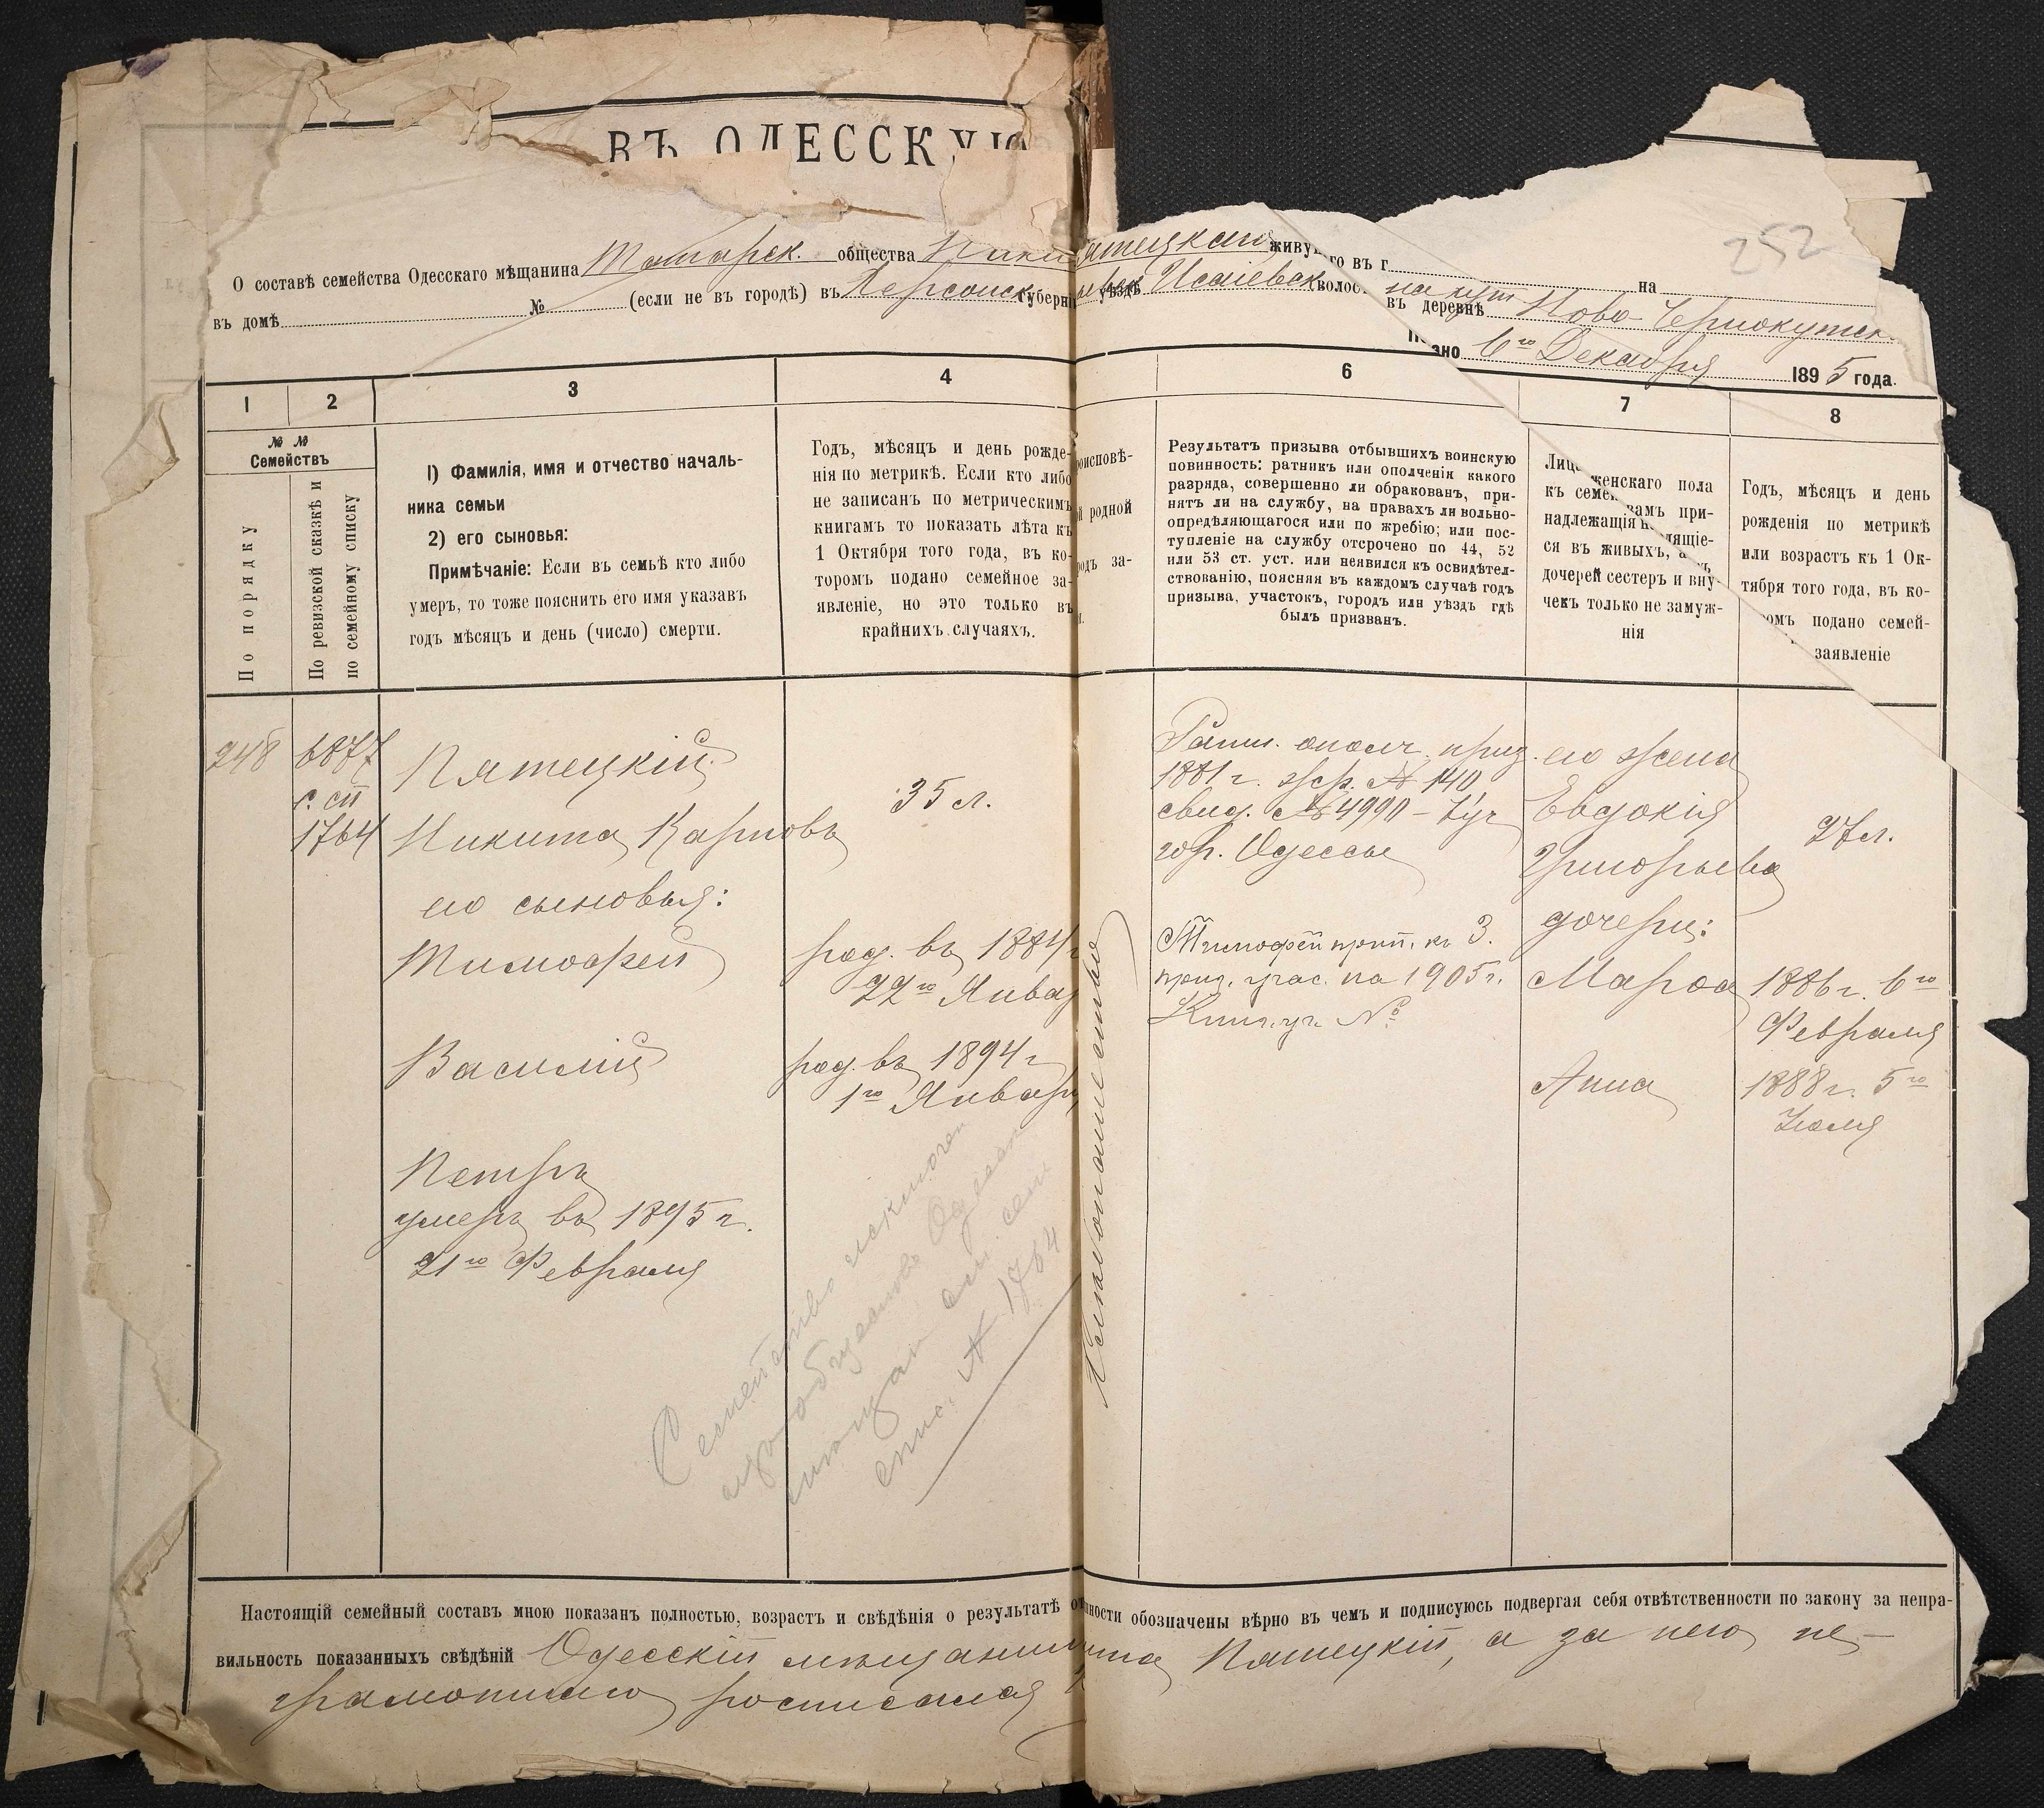 ВЪ ОДЕССКУЮ
252
О составѣ семейства Одесскаго мѣщанина Татарск. общества Ники ятецкаго живу го въ г. на
въ домѣ № (если не въ городѣ) въ Херсонск. губерн уѣздѣ Исаевск. волос въ деревнѣ Ново-
6го Декабря 1895 года.
1 2 3 4 6 7 8
№ №
Семействъ
По порядку
По ревизской сказкѣ и
по семейному списку
1) Фамилія, имя и отчество началь-
ника семьи
2) его сыновья:
Примѣчаніе: Если въ семьѣ кто либо
умеръ, то тоже пояснить его имя указавъ
годъ мѣсяцъ и день (число) смерти.
Годъ, мѣсяцъ и день рожде-
нія по метрикѣ. Если кто либо
не записанъ по метрическимъ
книгамъ то показать лѣта къ
1 Октября того года, въ ко-
торомъ подано семейное за-
явленіе, но это только въ
крайнихъ случаяхъ.
роисповѣ-
й родной
одъ за-
Результатъ призыва отбывшихъ воинскую
повинность: ратникъ или ополченія какого
разряда, совершенно ли обракованъ, при-
нятъ ли на службу, на правахъ ли вольно-
опредѣляющагося или по жребію; или пос-
тупленіе на службу отсрочено по 44, 52
или 53 ст. уст. или неявился къ освидѣтел-
ствованію, поясняя въ каждомъ случаѣ годъ
призыва, участокъ, городъ или уѣздъ гдѣ
былъ призванъ.
Лиц женскаго пола
къ семе вамъ при-
надлежащія н дящіе-
ся въ живыхъ, а
дочерей сестеръ и вну-
чекъ только не замуж-
нія
Годъ, мѣсяцъ и день
рожденія по метрикѣ
или возрастъ къ 1 Ок-
тября того года, въ ко-
омъ подано семей-
заявленіе
248
6877
с. сп
1764
Пятецкій
Никита Карповъ
35 л.
его сыновья:
Тимофей
род. въ 1884 г
22го Янва
Василій
род. въ 1894 г
1го Январ
Петръ
умеръ въ 1895 г.
21го Февраля
Семейство
№ 1764
Ратн. ополч. приз.
1881 г. жр. № 140
свид. № 4990 - 1 уч
гор. Одессы
Тимофей прип. къ 3.
приз. учас. на 1905 г.
№
его жена
Евдокія
Григорьева
27 л.
дочери:
Марфа
1886 г. 6го
Февраля
Анна
1888 г. 5го
Іюля
Настоящій семейный составъ мною показанъ полностью, возрастъ и свѣдѣнія о результатѣ о нности обозначены вѣрно въ чемъ и подписуюсь подвергая себя отвѣтственности по закону за непра-
вильность показанныхъ свѣдѣній Одесскій мѣщанин ита Пятецкій, а за него не-
грамотнаго росписался